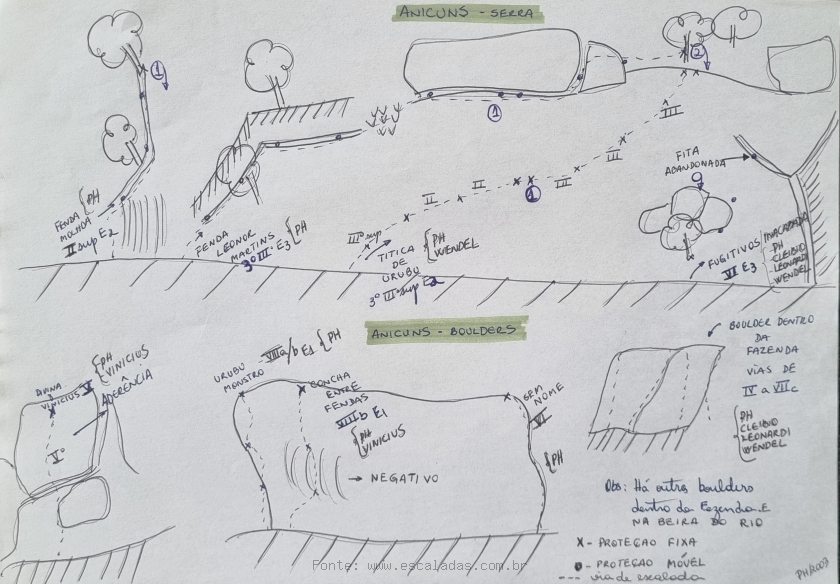 ANICUNS - SERRA
1
2
1
III
III
III
II
II
1
III° sup
FENDA
MOLHADA
{PH
II sup E2
FENDA
LEONOR
MARTINS
{PH
3° III° E3
TITICA
DE
URUBU
{PH
WENDEL
3° III° sup E2
FITA
ABANDONADA
FUGITIVOS
VI E3
INACABADA
PH
CLEIBIO
LEONARDI
WENDEL
ANICUNS - BOULDERS
VINICIUS V
{PH
VINICIUS
ADERÊNCIA
V°
URUBU
MONSTRO
VIIa/b E1 {PH
CONCHA
ENTRE
FENDAS
VIIIb E1
{PH
VINICIUS
→ NEGATIVO
SEM
NOME
VI
{PH
BOULDER DENTRO
DA
FAZENDA
VIAS DE
IV a VIIc
{PH
CLEIBIO
LEONARDI
WENDEL
Obs: Há outros boulders
dentro da Fazenda. E
NA BEIRA DO RIO
X - PROTEÇÃO FIXA
- PROTEÇÃO MÓVEL
--- via de escalada
Fonte: www.escaladas.com.br